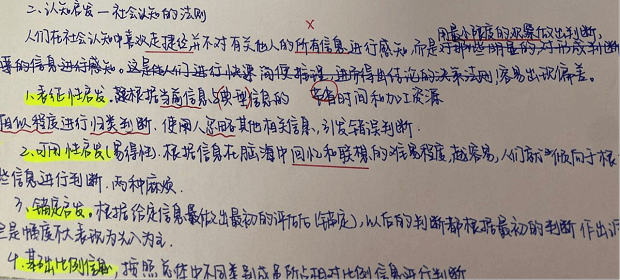 二、认知启发—社会认知的法则
人们在社会认知中喜欢走捷径并不对有关他人的所有信息进行感知,而是对那些明显的对形成判断
用最小限度的观察做出判断,
要的信息进行感知。这是使人们进行快速简便推理,进而得出结论的决策法则,容易出现偏差。
1.表征性启发。根据当前信息与典型信息的 节省时间和加工资源
相似程度进行归类判断,使用人忽略其他相关信息、引发错误判断.
2.可用性启发(易得性).根据信息在脑海中回忆和联想的难易程度,越容易,人们就倾向于根
些信息进行判断.两种麻烦.
3.锚定启发。根据给定信息最做出最初的评估后(锚定),以后的判断都根据最初的判断作出调
是幅度不大表现为先入为主.
4.基础比例信息,按照总体中不同类别成员所占相对比例信息进行判断